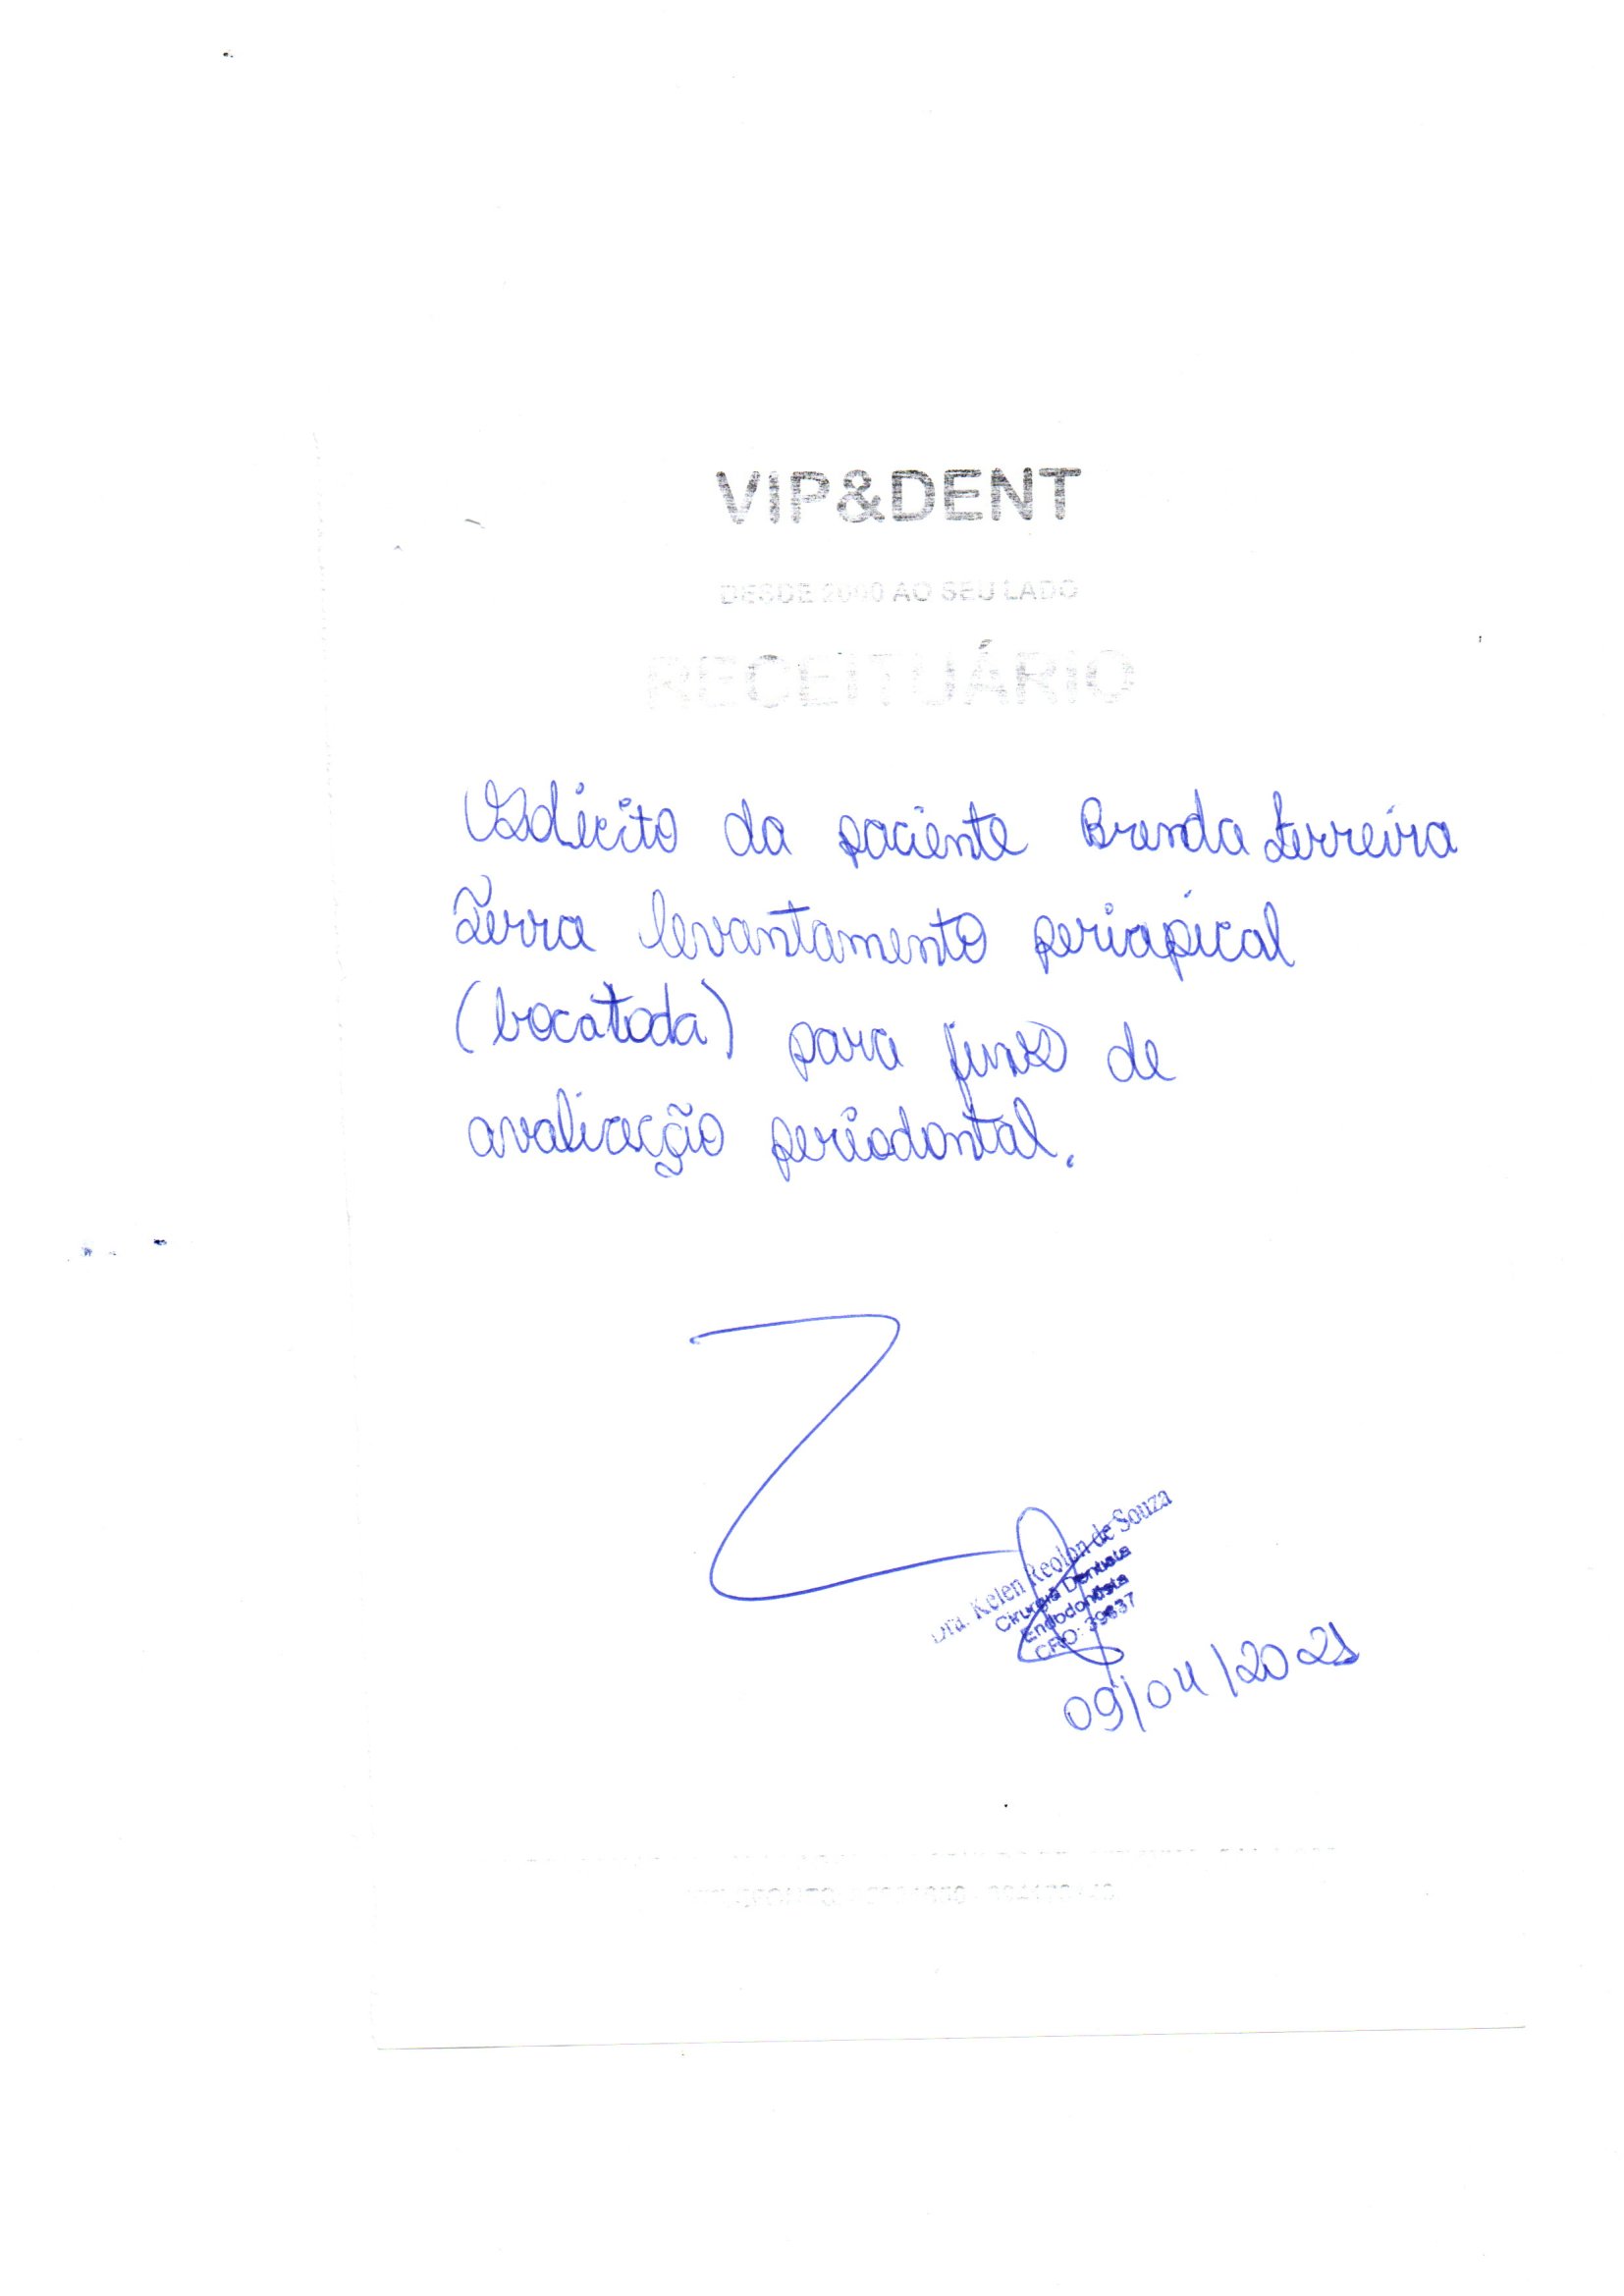 VIP&DENT
DESDE 2000 AO SEU LADO
RECEITUÁRIO
Solicito da paciente Brenda Ferreira
Terra levantamento periapical
(boca toda) para fins de
avaliação periodontal.
Dra. Kelen Reolon de Souza
Cirurgiã Dentista
Endodontista
CRO: 39637
09/04/2021